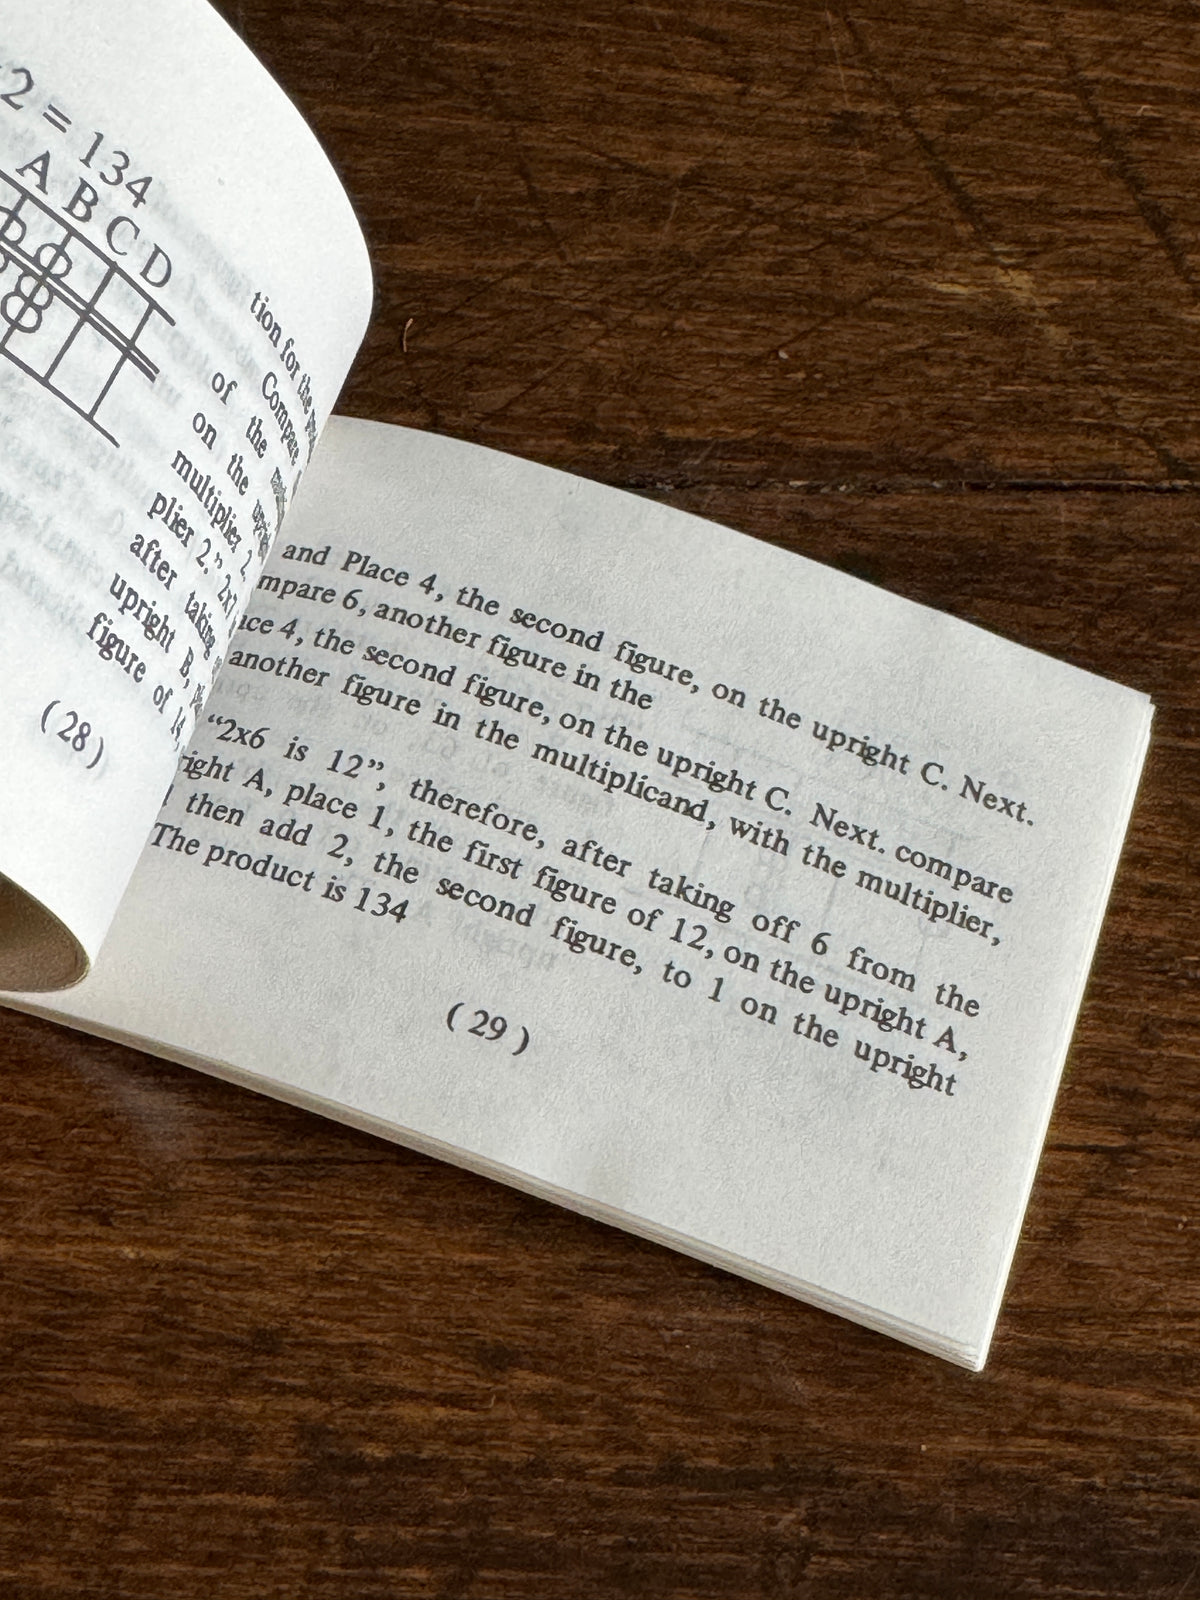 2 = 134
A B C D
tion for the
Compare
of the
on the
multiplier 2.
plier 2." 2x7
after taking
upright B,
figure of 14,
(28)
and Place 4, the second figure, on the upright C. Next.
mpare 6, another figure in the
ace 4, the second figure, on the upright C. Next. compare
another figure in the multiplicand, with the multiplier,
"2x6 is 12", therefore, after taking off 6 from the
right A, place 1, the first figure of 12, on the upright A,
then add 2, the second figure, to 1 on the upright
The product is 134
(29)